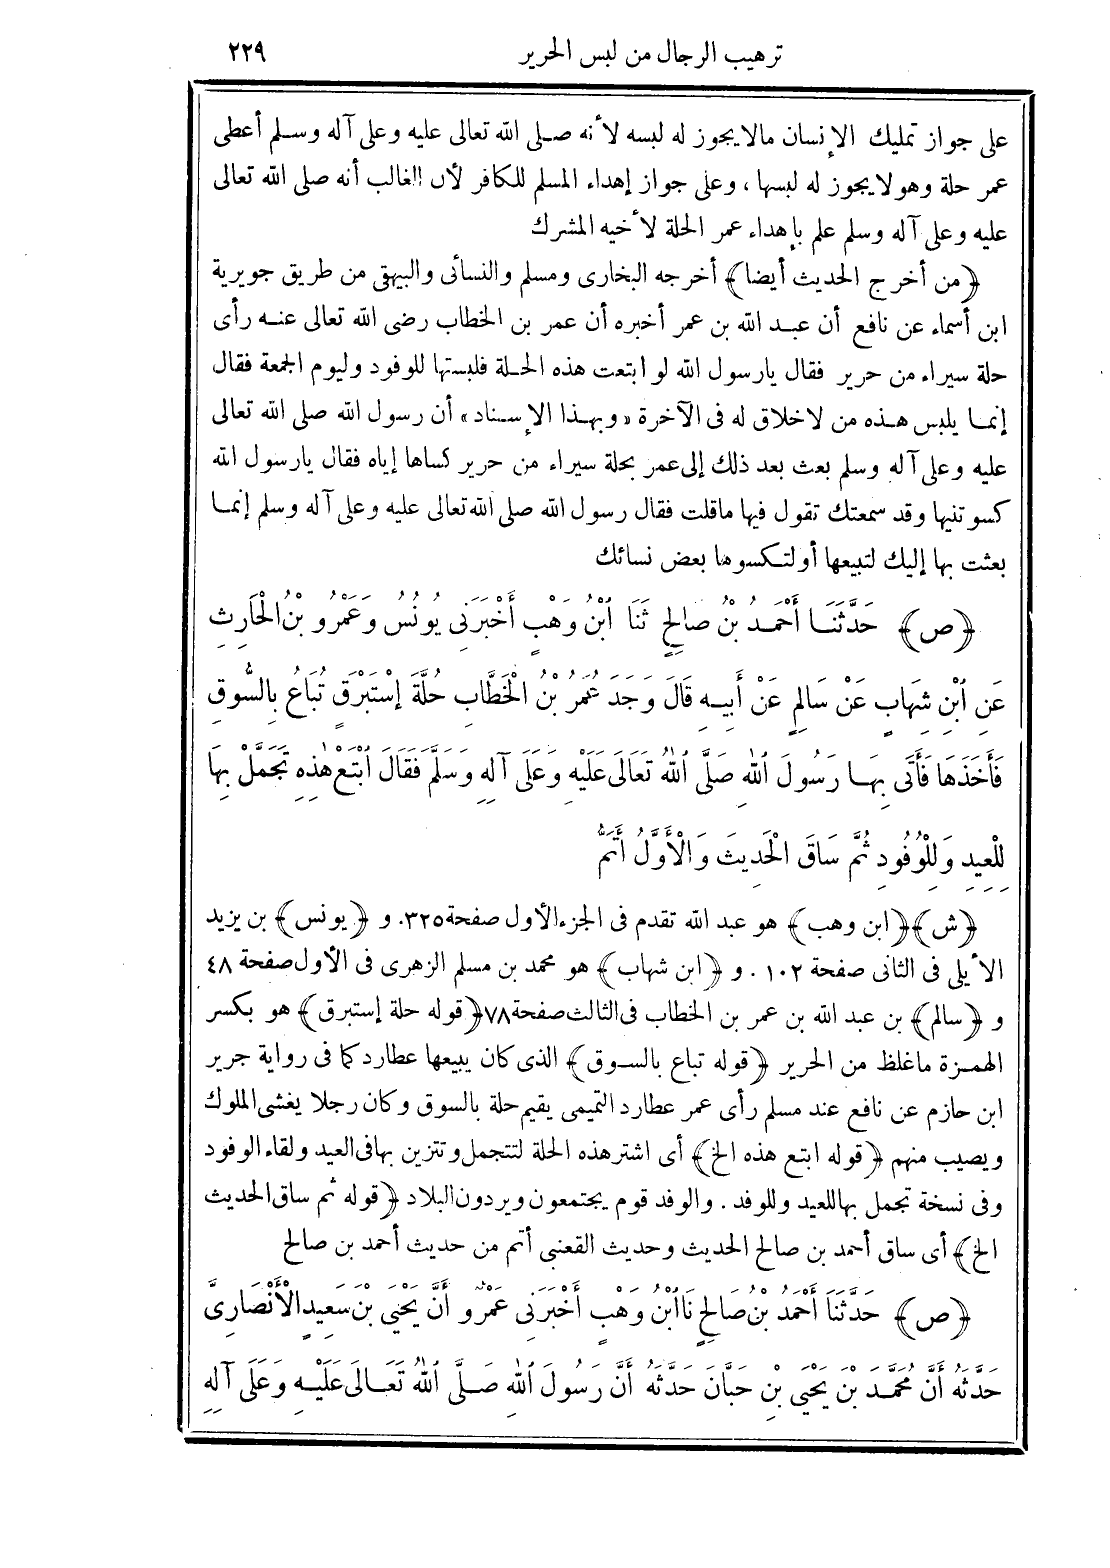 ترهيب الرجال من لبس الحرير ٢٢٩
على جواز تمليك الإنسان مالايجوز له لبسه لأنه صلى الله تعالى عليه وعلى آله وسلم أعطى
عمر حلة وهو لايجوز له لبسها ، وعلى جواز إهداء المسلم للكافر لأن الغالب أنه صلى الله تعالى
عليه وعلى آله وسلم علم بإهداء عمر الحلة لأخيه المشرك
﴿من أخرج الحديث أيضا﴾ أخرجه البخارى ومسلم والنسائى والبيهقى من طريق جويرية
ابن أسماء عن نافع أن عبد الله بن عمر أخبره أن عمر بن الخطاب رضى الله تعالى عنه رأى
حلة سيراء من حرير فقال يارسول الله لو ابتعت هذه الحلة فلبستها للوفود وليوم الجمعة فقال
إنما يلبس هذه من لاخلاق له فى الآخرة «وبهذا الإسناد» أن رسول الله صلى الله تعالى
عليه وعلى آله وسلم بعث بعد ذلك إلى عمر بحلة سيراء من حرير كساها إياه فقال يارسول الله
كسوتنيها وقد سمعتك تقول فيها ماقلت فقال رسول الله صلى الله تعالى عليه وعلى آله وسلم إنما
بعثت بها إليك لتبيعها أو لتكسوها بعض نسائك
﴿ص﴾ حَدَّثَنَا أَحْمَدُ بْنُ صَالِحٍ ثَنَا ابْنُ وَهْبٍ أَخْبَرَنِى يُونُسُ وَعَمْرُو بْنُ الْحَارِثِ
عَنِ ابْنِ شِهَابٍ عَنْ سَالِمٍ عَنْ أَبِيهِ قَالَ وَجَدَ عُمَرُ بْنُ الْخَطَّابِ حُلَّةَ إِسْتَبْرَقٍ تُبَاعُ بِالسُّوقِ
فَأَخَذَهَا فَأَتَى بِهَا رَسُولَ اللهِ صَلَّى اللهُ تَعَالَى عَلَيْهِ وَعَلَى آلِهِ وَسَلَّمَ فَقَالَ ابْتَعْ هٰذِهِ تَجَمَّلْ بِهَا
لِلْعِيدِ وَلِلْوُفُودِ ثُمَّ سَاقَ الْحَدِيثَ وَالْأَوَّلُ أَتَمُّ
﴿ش﴾﴿ابن وهب﴾ هو عبد الله تقدم فى الجزء الأول صفحة ٣٢٥. و ﴿يونس﴾ بن يزيد
الأيلى فى الثانى صفحة ١٠٢ . و ﴿ابن شهاب﴾ هو محمد بن مسلم الزهرى فى الأول صفحة ٤٨
و ﴿سالم﴾ بن عبد الله بن عمر بن الخطاب فى الثالث صفحة ٧٨ ﴿قوله حلة إستبرق﴾ هو بكسر
الهمزة ماغلظ من الحرير ﴿قوله تباع بالسوق﴾ الذى كان يبيعها عطارد كما فى رواية جرير
ابن حازم عن نافع عند مسلم رأى عمر عطارد التميمى يقيم حلة بالسوق وكان رجلا يغشى الملوك
ويصيب منهم ﴿قوله ابتع هذه الخ﴾ أى اشتر هذه الحلة لتتجمل وتتزين بها فى العيد ولقاء الوفود
وفى نسخة تجمل بها للعيد وللوفد . والوفد قوم يجتمعون ويردون البلاد ﴿قوله ثم ساق الحديث
الخ﴾ أى ساق أحمد بن صالح الحديث وحديث القعنبى أتم من حديث أحمد بن صالح
﴿ص﴾ حَدَّثَنَا أَحْمَدُ بْنُ صَالِحٍ نَا ابْنُ وَهْبٍ أَخْبَرَنِى عَمْرٌو أَنَّ يَحْيَى بْنَ سَعِيدٍ الْأَنْصَارِىَّ
حَدَّثَهُ أَنَّ مُحَمَّدَ بْنَ يَحْيَى بْنِ حَبَّانَ حَدَّثَهُ أَنَّ رَسُولَ اللهِ صَلَّى اللهُ تَعَالَى عَلَيْهِ وَعَلَى آلِهِ